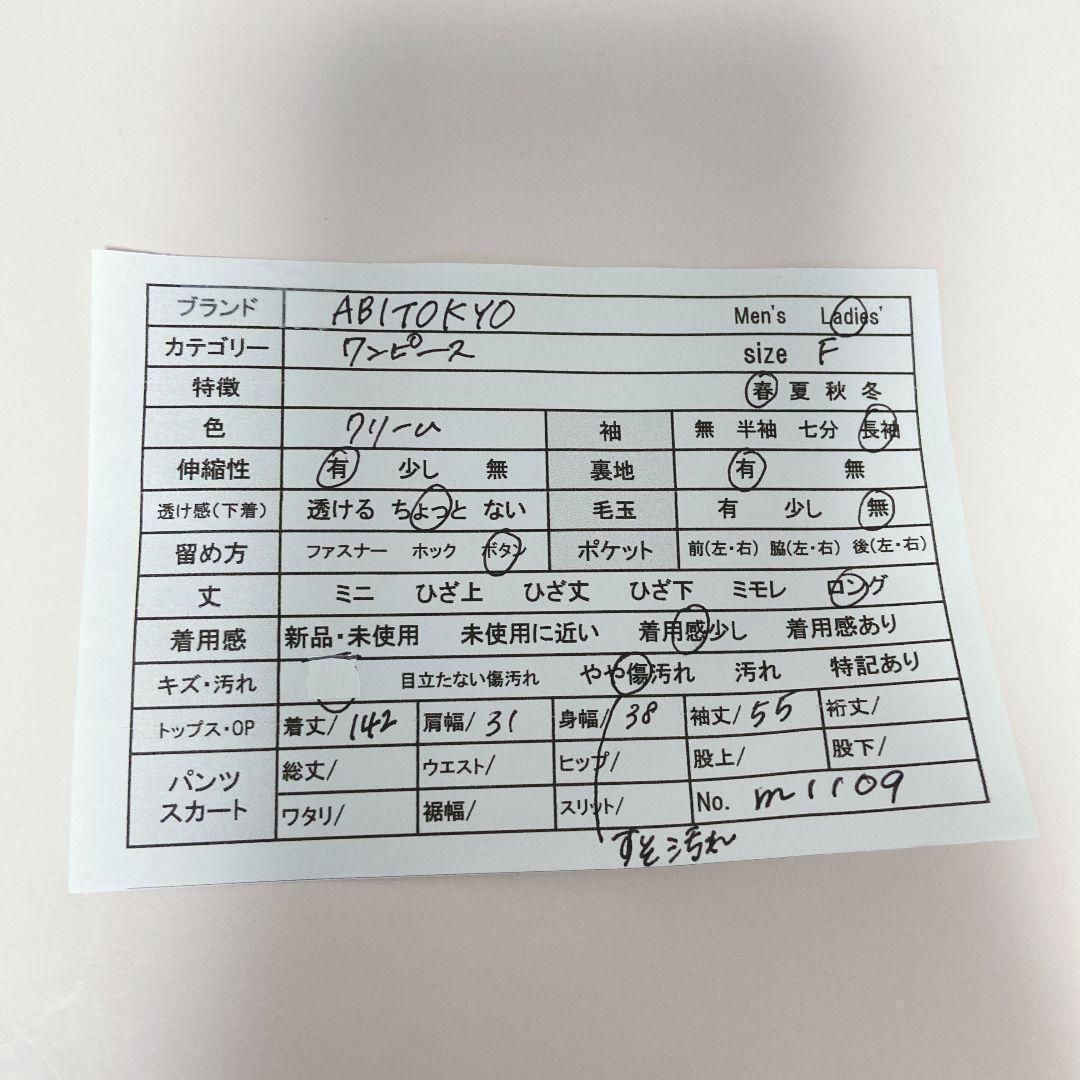 ブランド ABITOKYO Men's Ladies'
カテゴリー ワンピース size F
特徴 春 夏 秋 冬
色 クリーム 袖 無 半袖 七分 長袖
伸縮性 有 少し 無 裏地 有 無
透け感(下着) 透ける ちょっと ない 毛玉 有 少し 無
留め方 ファスナー ホック ボタン ポケット 前(左・右) 脇(左・右) 後(左・右)
丈 ミニ ひざ上 ひざ丈 ひざ下 ミモレ ロング
着用感 新品・未使用 未使用に近い 着用感少し 着用感あり
キズ・汚れ 目立たない傷汚れ やや傷汚れ 汚れ 特記あり
トップス・OP 着丈/ 142 肩幅/ 31 身幅/ 38 袖丈/ 55 裄丈/
パンツ スカート 総丈/ ウエスト/ ヒップ/ 股上/ 股下/
ワタリ/ 裾幅/ スリット/ No. m1109
すそ汚れ